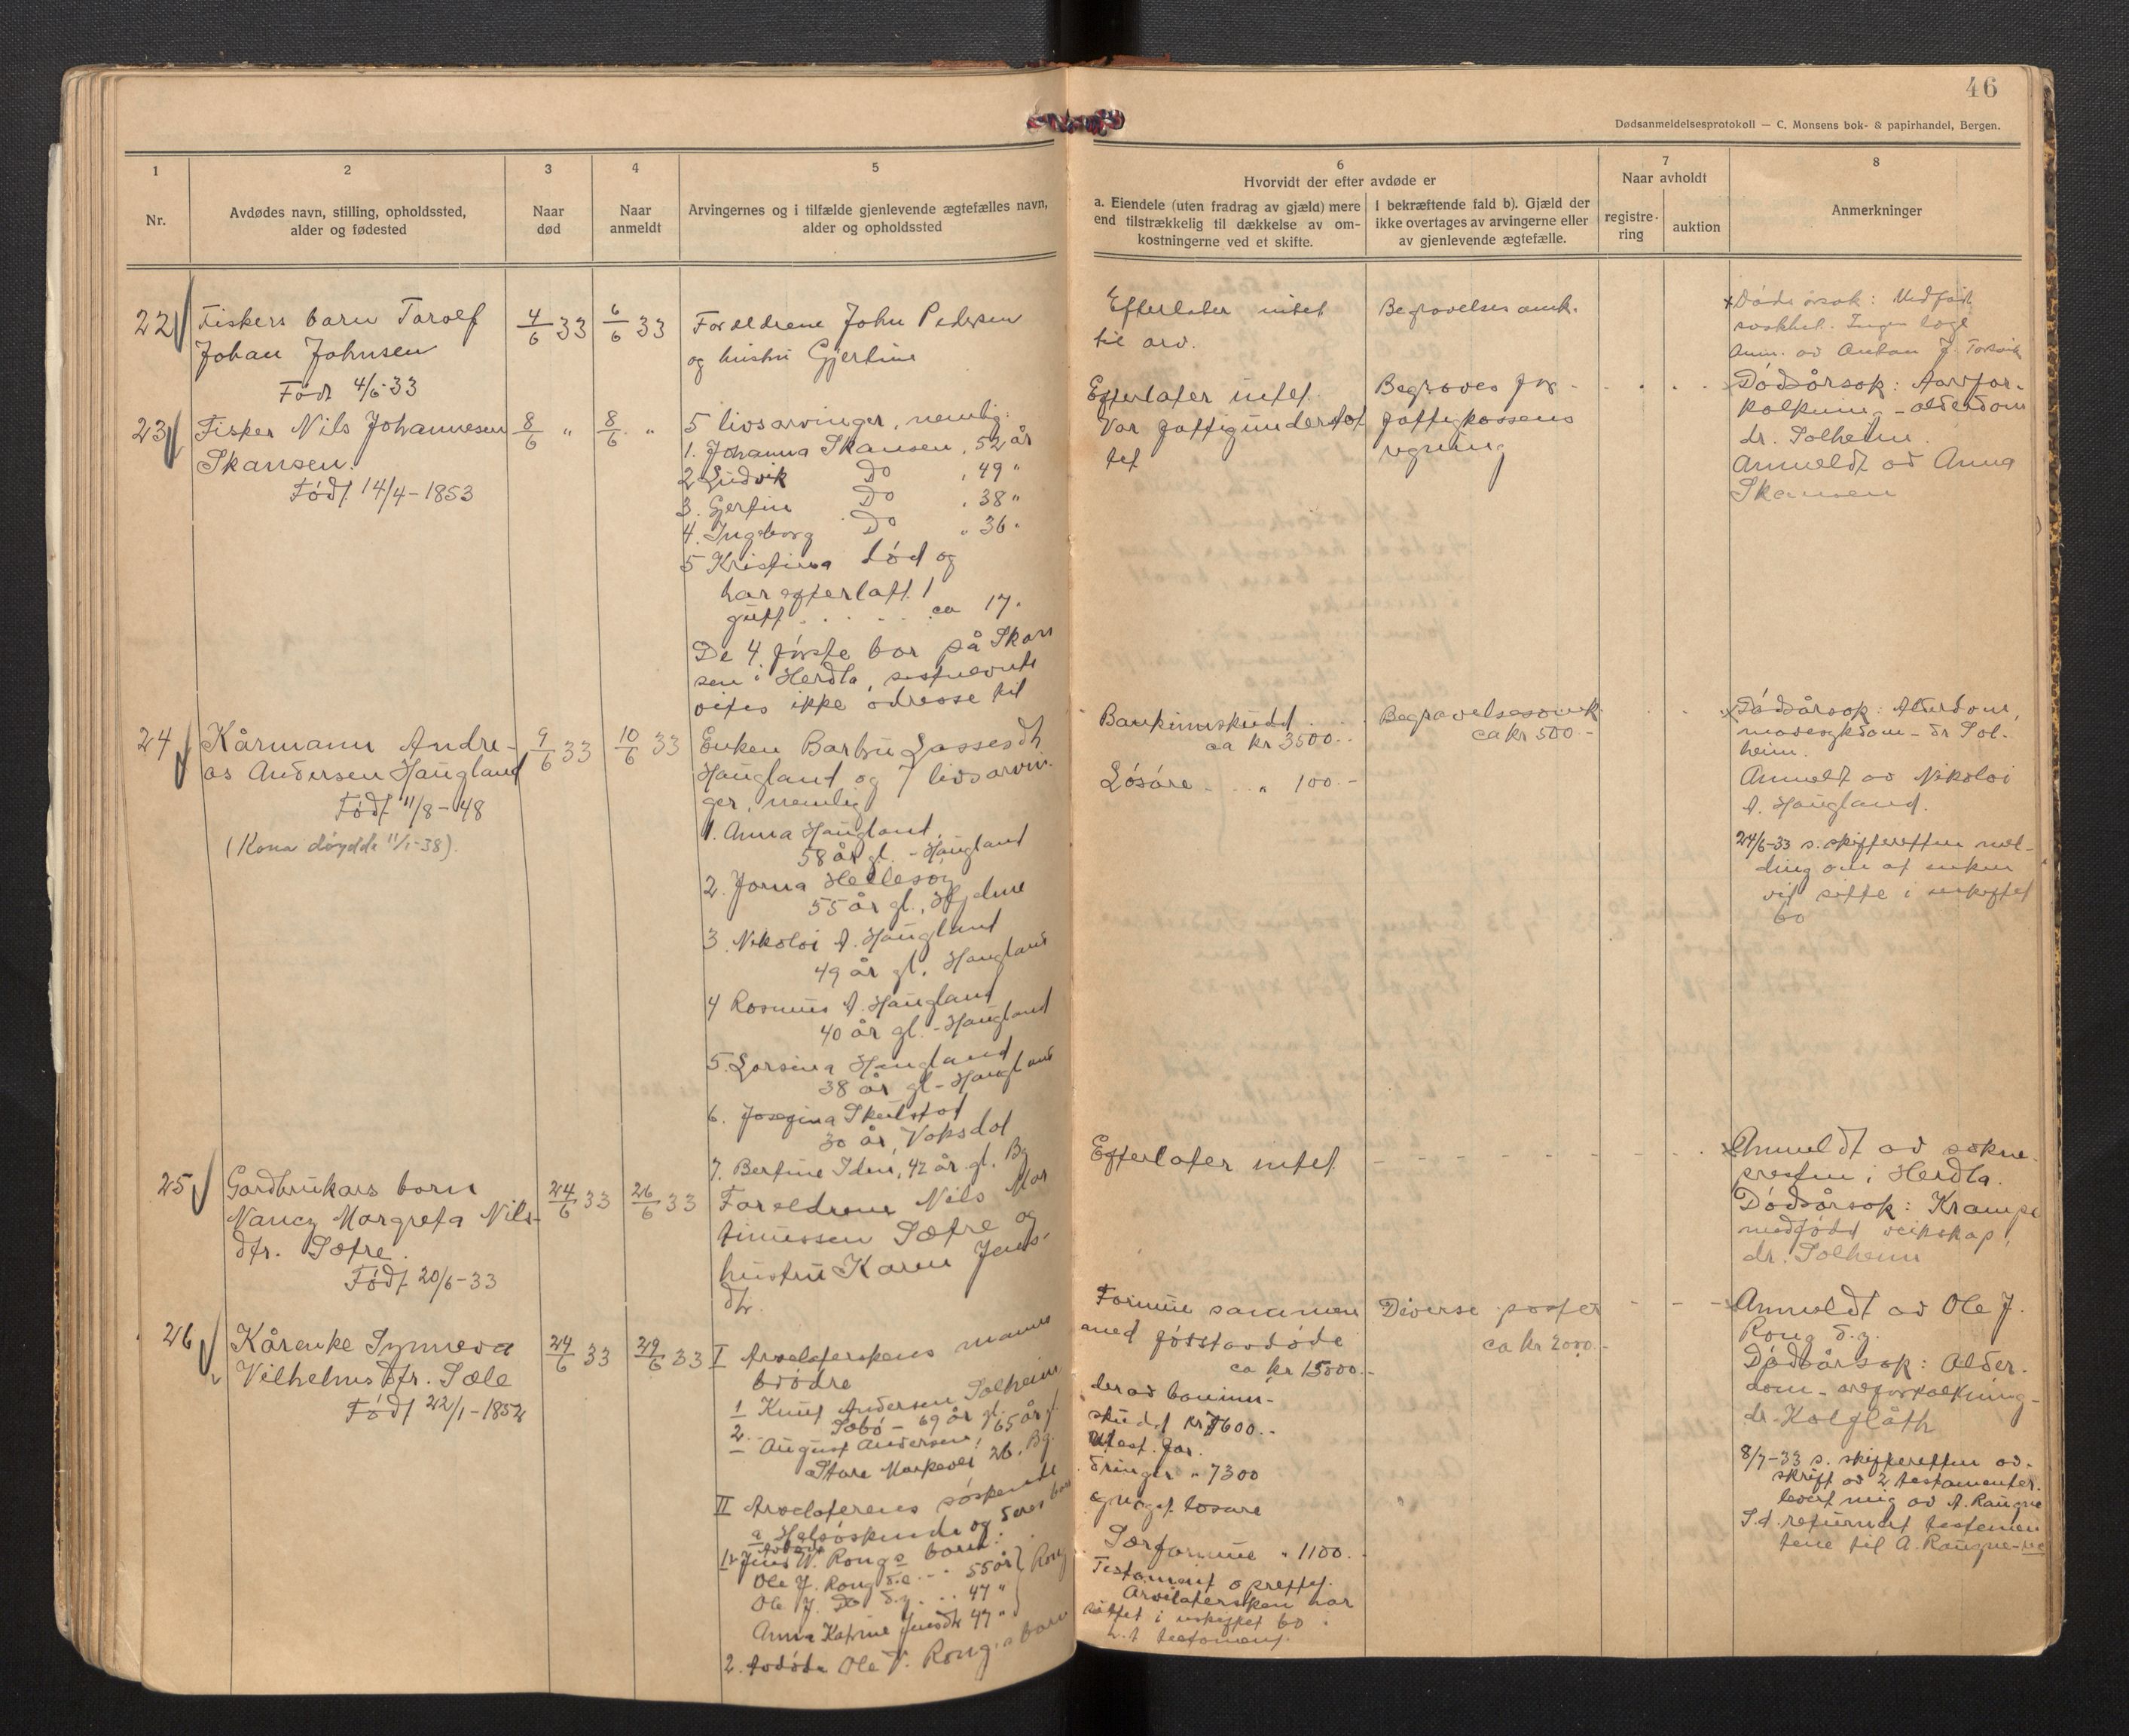 46
Dødsanmeldelsesprotokoll — C. Monsens bok- & papirhandel, Bergen.
1
Nr.
2
Avdødes navn, stilling, opholdssted,
alder og fødested
3
Naar
død
4
Naar
anmeldt
5
Arvingernes og i tilfælde gjenlevende ægtefælles navn,
alder og opholdssted
6
Hvorvidt der efter avdøde er
a. Eiendele (uten fradrag av gjæld) mere
end tilstrækkelig til dækkelse av om-
kostningerne ved et skifte.
I bekræftende fald b). Gjæld der
ikke overtages av arvingerne eller
av gjenlevende ægtefælle.
7
Naar avholdt
registre-
ring
auktion
8
Anmerkninger
22
Fiskers barn Torolf
Johan Johnsen
Født 4/6-33
4/6 33
6/6 33
Foreldrene John Pedersen
og hustru Gjertine
Efterlater intet
til arv.
Begravelsesomk.
Dødsårsak: Medfødt
svakhet. Ingen læge
Anm. av Anton J.
23
Fisker Nils Johannesen
Skansen.
Født 14/4-1853
8/6 "
8/6 "
5 livsarvinger, nemlig:
1. Johanna Skansen, 52 år
2 Ludvik Do , 49 "
3. Gjertin Do , 38 "
4. Ingeborg Do , 36 "
5 Kristina død og
har efterlatt 1
gutt . . . . . ca 17.
De 4 første bor på Skan
sen i Herdla, sistnevnte
vites ikke adresse til
Efterlater intet.
Var fattigunderstøt
tet
Begraves for
fattigkassens
regning
Dødsårsak: Aarefor-
kalkning - alderdom
dr. Solheim.
Anmeldt av Anna
Skansen
24
Kårmann Andre-
as Andersen Haugland
Født 11/8-48
(Kona døydde 11/1-38).
9/6 33
10/6 33
Enken Barbru Lassesdtr
Haugland og 7 livsarvin-
ger, nemlig
1. Anna Haugland,
58 år gl. - Haugland
2. Jorna Hellesøy
55 år gl., Hjelme
3. Nikolai A. Haugland
49 år gl. Haugland
4 Rasmus A. Haugland
40 år gl. - Haugland
5. Lorsina Haugland
38 år gl - Haugland
6. Josefina Skulstad
30 år, Vaksdal
7. Bertine Iden, 42 år gl. Bg
Bankinnskudd . . .
ca kr 3500.-
Løsøre - . . " 100.-
Begravelsesomk
ca kr 500.-
Dødsårsak: Alderdom,
mavesykdom - dr Sol-
heim.
Anmeldt av Nikolai
A. Haugland.
24/6-33 s. skifteretten mel-
ding om at enken
vil sitte i uskiftet
bo
25
Gardbrukars born
Nancy Margreta Nils-
dtr. Sætre.
Født 20/6-33
24/6 33
26/6 33
Foreldrene Nils Mar
tinussen Sætre og
hustru Karen Jens-
dtr.
Efterlater intet
Anmeldt av sokne-
presten i Herdla.
Dødsårsak: Krampe
medfødd veikskap,
dr. Solheim
26
Kårenke Synneva
Vilhelmsdtr. Sæle
Født 22/1-1852
24/6 33
29/6 33
I Arvelaterskens manns
brødre
1 Knut Andersen Solheim
Sæbø - 69 år gl.
2. August Andersen, 65 år gl.
Store Markevei 26, Bg.
II Arvelaterens søskende
a Helsøskende og deres barn
1. Avdøde Jens V. Rongs barn:
Ole J. Rong d.e. . . 55 år
Ole J. Do d.y. . . 47 "
Anna Katrine Jensdtr 47 "
Rong
2. Avdøde Ole V. Rongs barn
Formue sammen
med førstavdøde
ca kr 15000.-
derav bankinn-
skudd kr 7600.-
Utest. for-
dringer " 7300
og noget løsøre
Særformue " 1100.
Testament oprettet.
Arvelatersken har
sittet i uskiftet bo
h.t testament.
Diverse poster
ca kr 2000.-
Anmeldt av Ole J.
Rong d.y.
Dødsårsak: Alder-
dom - areforkalkning -
dr.
8/7-33 s. skifteretten av-
skrift av 2 testamenter
levert mig av A. Raugne
S.d. returnert testamen
tene til A. Raugne